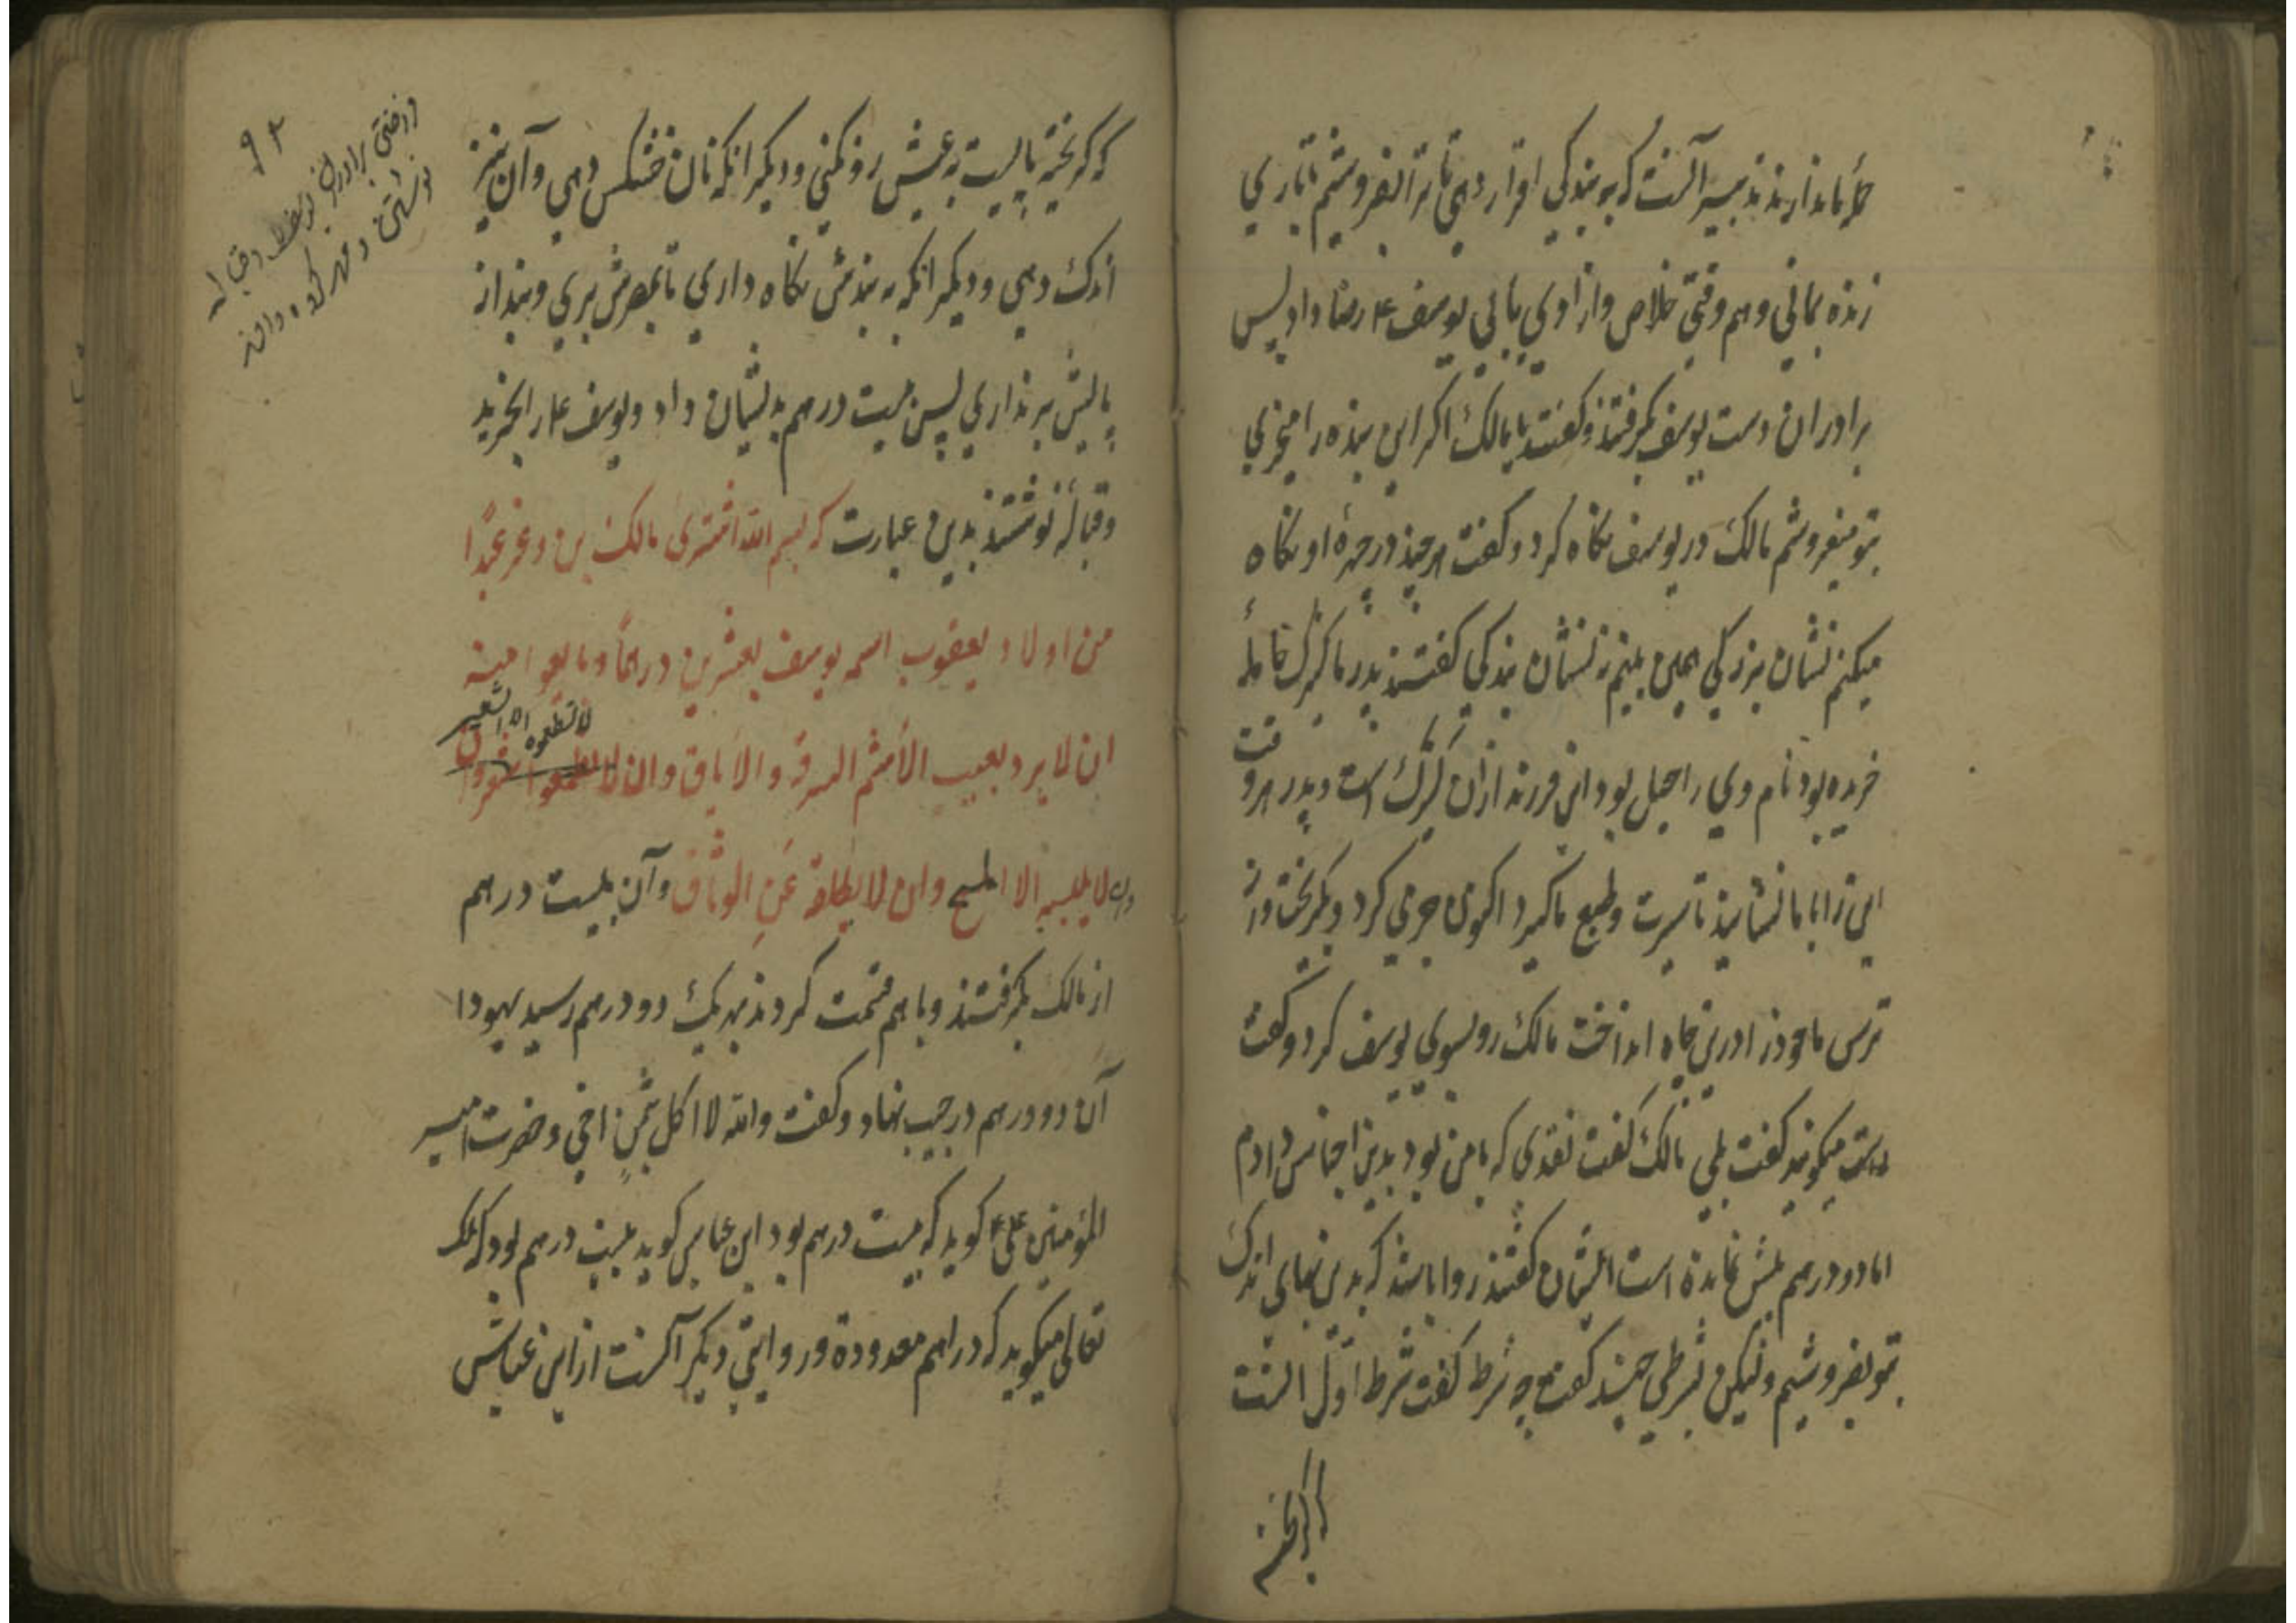 ما ندارند تدبیر آنست که به بندگی اقرار دهی تا ترا بفروشیم تا باری
زنده بمانی و هم وقتی خلاص و ازادی یابی یوسف ع رضا داد پس
برادران دست یوسف بگرفتند و گفتند یا مالک اگر این بنده را میخری
بتو میفروشیم مالک در یوسف نگاه کرد و گفت هرچند در چهرهٔ او نگاه
میکنم نشان بزرگی همی بینم نه نشان بندگی گفتند پدر ما کنیزک
خریده بود نام وی راحیل بود این فرزند ازان کنیزک است و پدر هر وقت
این را با ما نشاند تا سیرت و طبع ما گیرد اکنون جرمی کرد و بگریخت و از
ترس ما خود را درین چاه انداخت مالک رو بسوی یوسف کرد و گفت
راست میگویند گفت بلی مالک گفت نقدی که با من بود بدین اجناس دادم
اما دو درهم بیش نمانده است ایشان گفتند روا باشد که بدین بهای اندک
بتو بفروشیم ولیکن بشرطی چند گفت چه شرط گفت شرط اول انست
که گریخته
۹۲
که گریخته پالیست به عیبش رد نکنی و دیگر انکه نان خشکس دهی و آن نیز
اندک دهی و دیگر انکه به بندش نگاه داری تا بمصرش بری و بند از
پایش برنداری پس بیست درهم بدیشان داد و یوسف ع را بخرید
و قباله نوشتند بدین عبارت که بسم الله اشتری مالک بن دعر عبدًا
من اولاد یعقوب اسمه یوسف بعشرین درهمًا و بایعوا
لا تطعموه الا الشعیر
ان لا یرد بعیب الاسم السرقه والاباق وان لا
وان لا یلبسه الا المسح وان لا یطلقه عن الوثاق و آن بیست درهم
از مالک بگرفتند و با هم قسمت کردند بهر یک دو درهم رسید یهودا
آن دو درهم در جیب نهاد و گفت والله لا اکل ثمن اخی و حضرت امیر
المؤمنین علی ع گوید که بیست درهم بود ابن عباس گوید بیست درهم بود که ملک
تعالی میگوید که دراهم معدودة و روایتی دیگر آنست از ابن عباس
فروختن برادران یوسف و قباله
نوشتن و مهر کرده دادن